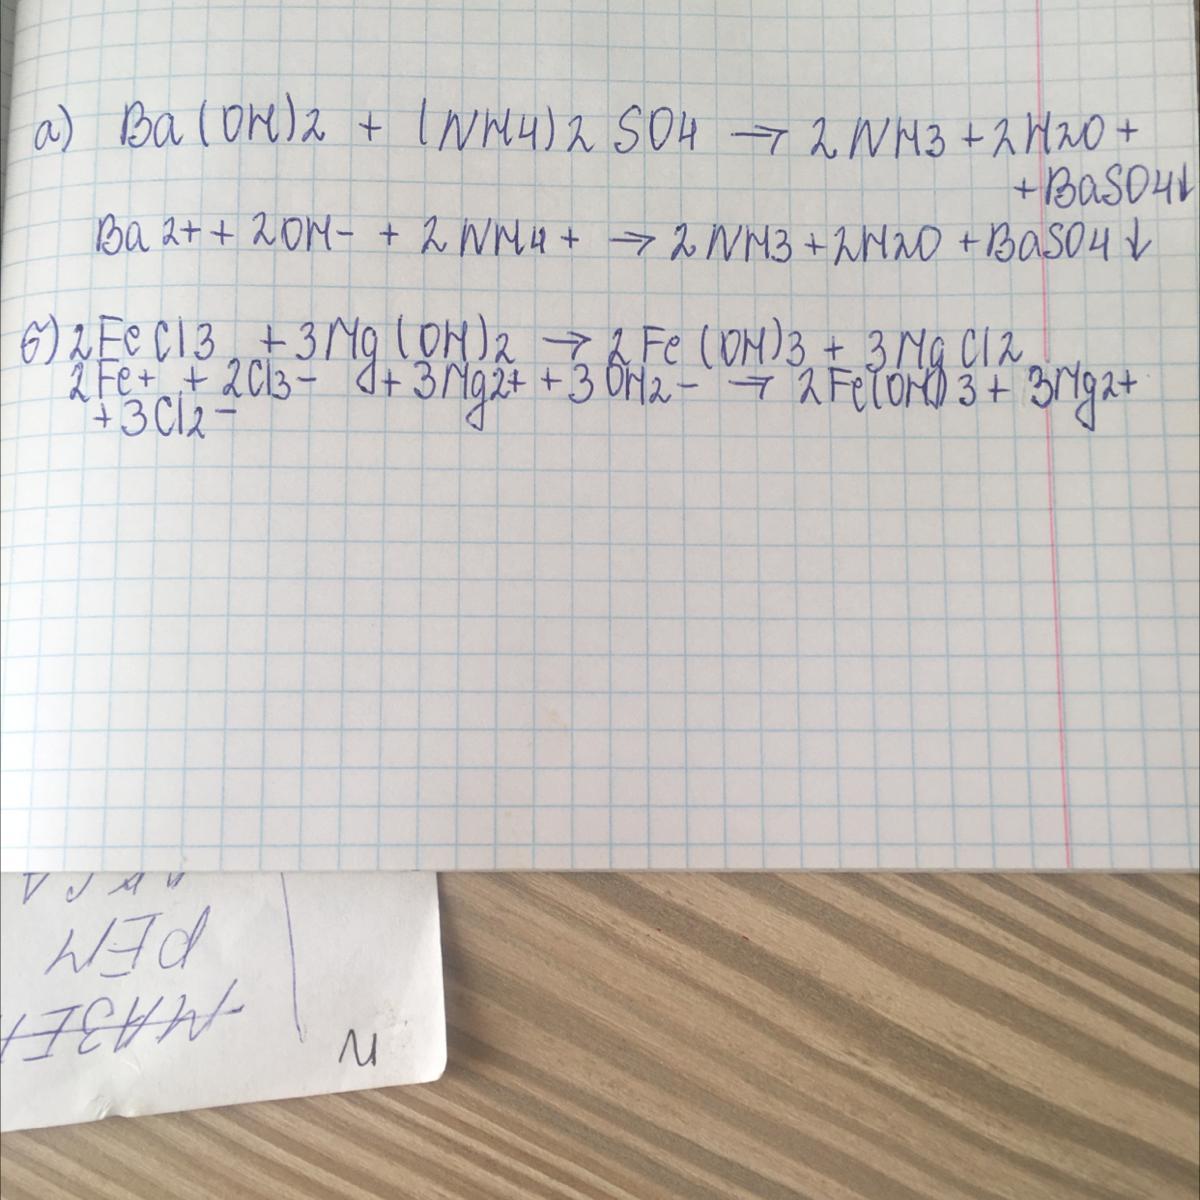 а) Ba(OH)2 + (NH4)2 SO4 → 2NH3 + 2H2O +
+ BaSO4↓
Ba2+ + 2OH- + 2NH4+ → 2NH3 + 2H2O + BaSO4↓
б) 2FeCl3 + 3Mg(OH)2 → 2Fe(OH)3 + 3MgCl2
2Fe+ + 2Cl3- + 3Mg2+ + 3OH2- → 2Fe(OH)3 + 3Mg2+
+ 3Cl2-
РЕМ
И